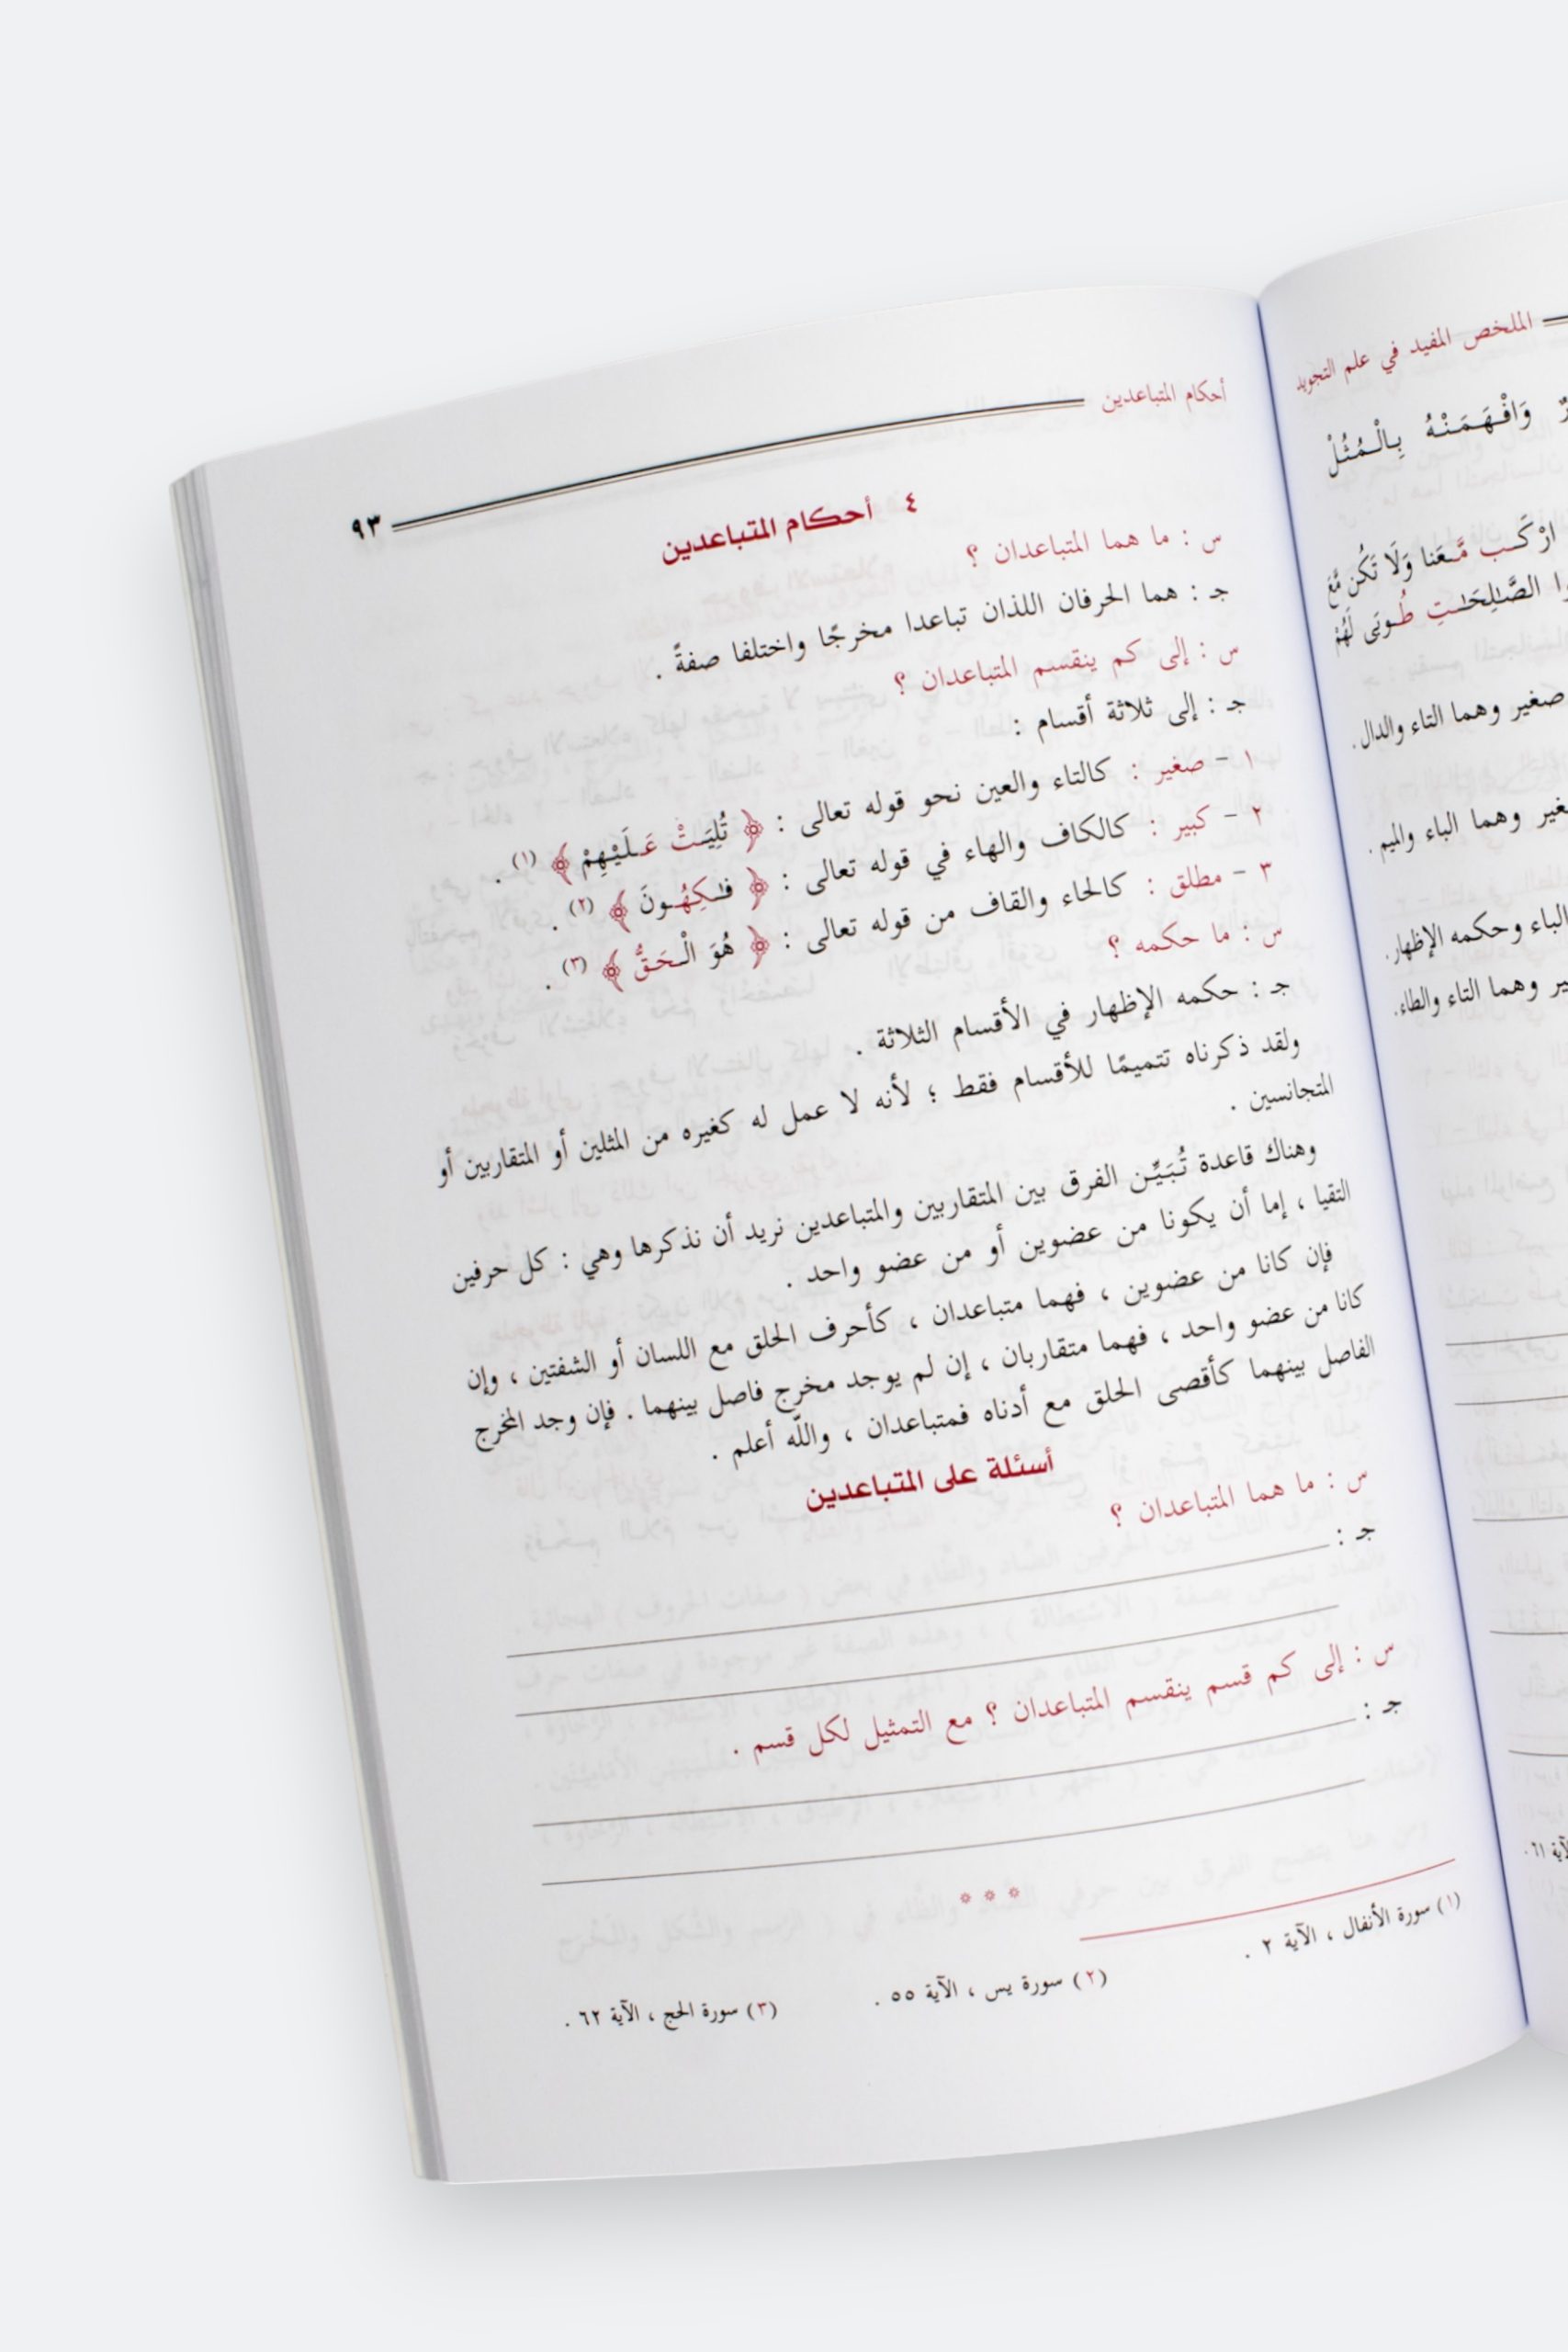 الملخص المفيد في علم التجويد
وَافْهَمَنْهُ بِالْمُثُلْ
ارْكَب مَّعَنا وَلَا تَكُن مَّعَ
الصَّـٰلِحَـٰتِ طُوبَى لَهُمْ
صغير وهما التاء والدال .
وهما الباء والميم .
الباء وحكمه الإظهار .
وهما التاء والطاء .
أحكام المتباعدين
٩٣
٤ أحكام المتباعدين
س : ما هما المتباعدان ؟
جـ : هما الحرفان اللذان تباعدا مخرجًا واختلفا صفةً .
س : إلى كم ينقسم المتباعدان ؟
جـ : إلى ثلاثة أقسام :
١ - صغير : كالتاء والعين نحو قوله تعالى : ﴿ تُلِيَتْ عَلَيْهِمْ ﴾ (١) .
٢ - كبير : كالكاف والهاء في قوله تعالى : ﴿ فَـٰكِهُونَ ﴾ (٢) .
٣ - مطلق : كالحاء والقاف من قوله تعالى : ﴿ هُوَ الْحَقُّ ﴾ (٣) .
س : ما حكمه ؟
جـ : حكمه الإظهار في الأقسام الثلاثة .
ولقد ذكرناه تتميمًا للأقسام فقط ؛ لأنه لا عمل له كغيره من المثلين أو المتقاربين أو
المتجانسين .
وهناك قاعدة تُبَيِّن الفرق بين المتقاربين والمتباعدين نريد أن نذكرها وهي : كل حرفين
التقيا ، إما أن يكونا من عضوين أو من عضو واحد .
فإن كانا من عضوين ، فهما متباعدان ، كأحرف الحلق مع اللسان أو الشفتين ، وإن
كانا من عضو واحد ، فهما متقاربان ، إن لم يوجد مخرج فاصل بينهما . فإن وجد المخرج
الفاصل بينهما كأقصى الحلق مع أدناه فمتباعدان ، واللّه أعلم .
أسئلة على المتباعدين
س : ما هما المتباعدان ؟
جـ :
س : إلى كم قسم ينقسم المتباعدان ؟ مع التمثيل لكل قسم .
جـ :
* * *
(١) سورة الأنفال ، الآية ٢ .
(٢) سورة يس ، الآية ٥٥ .
(٣) سورة الحج ، الآية ٦٢ .